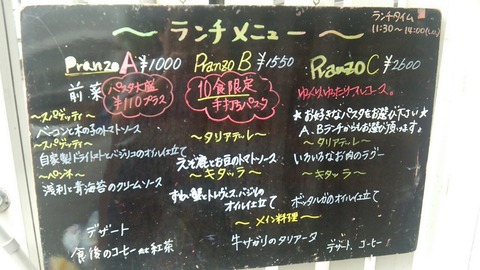 ～ランチメニュー～
ランチタイム
11:30～14:00(L.O)
Pranzo A ¥1000
前菜
パスタ大盛
¥110プラス
～スパゲッティ～
ベーコンと木の子のトマトソース
～スパゲッティ～
自家製ドライトマトとバジリコのオイル仕立て
～ペンネ～
浅利と青海苔のクリームソース
デザート
食後のコーヒー or 紅茶
Pranzo B ¥1550
10食限定
手打ちパスタ
～タリアテッレ～
えぞ鹿とお豆のトマトソース
～キタッラ～
ずわい蟹とトレヴィス、バジルの
オイル仕立て
～メイン料理～
牛サガリのタリアータ
Pranzo C ¥2600
ゆんりゆったりフルコース。
★お好きなパスタをお選び下さい★
A、Bランチからもお選び頂けます。
～タリアテッレ～
いろいろなお肉のラグー
～キタッラ～
ボッタルガのオイル仕立て
デザート、コーヒー